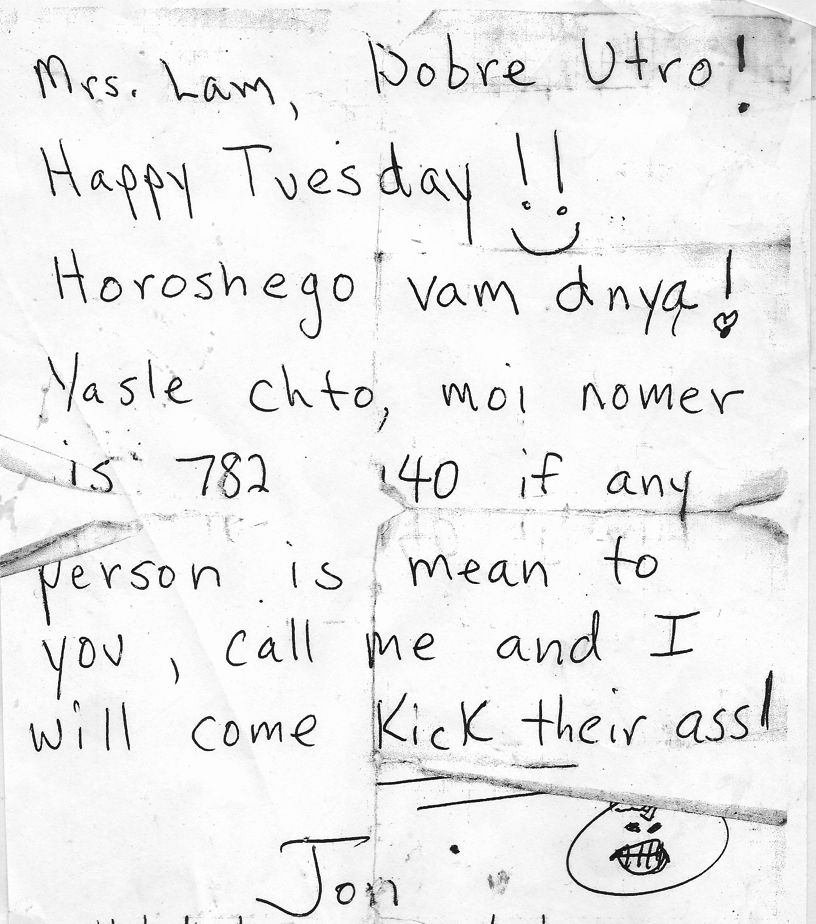 Mrs. Lam, Dobre Utro!
Happy Tuesday !!
Horoshego vam dnya!
Yasle chto, moi nomer
is 782 40 if any
person is mean to
you, call me and I
will come kick their ass!
Jon